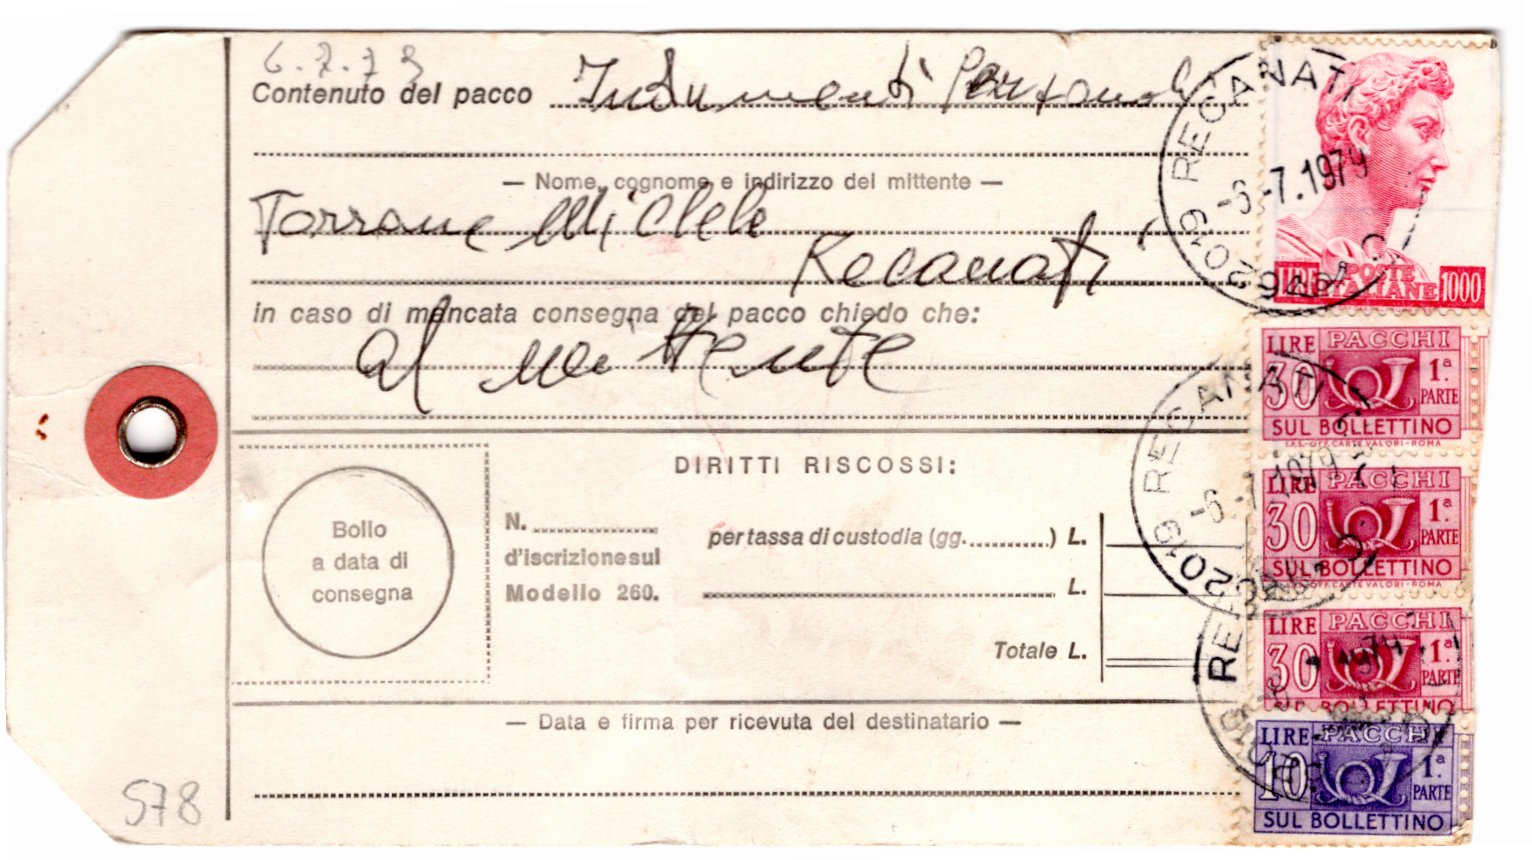 6.7.79
Contenuto del pacco Indumenti Personali
— Nome, cognome e indirizzo del mittente —
Torrone Michele
Recanati
in caso di mancata consegna del pacco chiedo che:
al mittente
DIRITTI RISCOSSI:
Bollo
a data di
consegna
N.
d'iscrizione sul
Modello 260.
per tassa di custodia (gg. ) L.
L.
Totale L.
— Data e firma per ricevuta del destinatario —
578
RECANATI
-6.-7.1979
62019
LIRE POSTE ITALIANE 1000
LIRE PACCHI
30 1ª PARTE
SUL BOLLETTINO
I.P.S.-OFF.CARTE VALORI-ROMA
RECANATI
-6.-7.1979
62019
LIRE PACCHI
30 1ª PARTE
SUL BOLLETTINO
I.P.S.-OFF.CARTE VALORI-ROMA
LIRE PACCHI
30 1ª PARTE
SUL BOLLETTINO
LIRE PACCHI
10 1ª PARTE
SUL BOLLETTINO